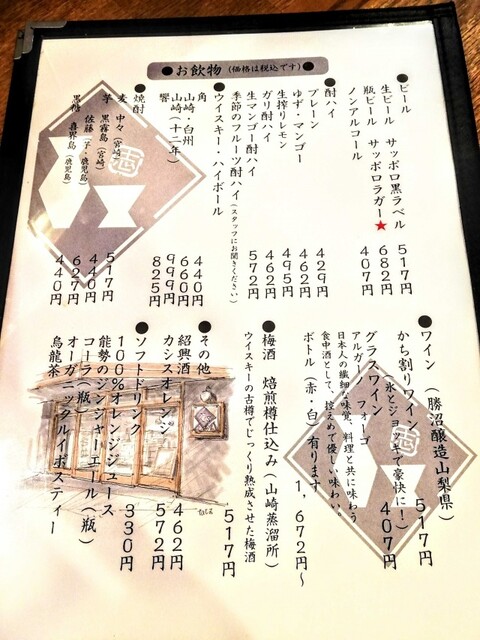 ●お飲物（価格は税込です）●
●ビール
生ビール　サッポロ黒ラベル　517円
瓶ビール　サッポロラガー★　682円
ノンアルコール　407円
●酎ハイ
プレーン　429円
ゆず・マンゴー　462円
生搾りレモン　495円
ガリ酎ハイ　462円
生マンゴー酎ハイ　572円
季節のフルーツ酎ハイ（スタッフにお聞きください）
●ウイスキー・ハイボール
角　440円
山崎・白州　660円
山崎（十二年）　999円
響　825円
●焼酎
麦　中々（宮崎）　517円
芋　黒霧島（宮崎）　440円
佐藤（芋・鹿児島）　627円
黒糖　喜界島（鹿児島）　440円
●ワイン　（勝沼醸造山梨県）
かち割りワイン　517円
（氷とジョッキで豪快にー）
グラスワイン　407円
アルガーノ　フォーゴ
日本人の繊細な味覚、料理と共に味わう
食中酒として、控えめで優しい味わい。
ボトル（赤・白）有ります　1,672円〜
●梅酒　焙煎樽仕込み（山崎蒸溜所）
ウイスキーの古樽でじっくり熟成させた梅酒
517円
●その他
紹興酒　462円
カシスオレンジ　572円
●ソフトドリンク　330円
100%オレンジジュース
能勢のジンジャーエール（瓶）
コーラ（瓶）
オーガニックルイボスティー
烏龍茶